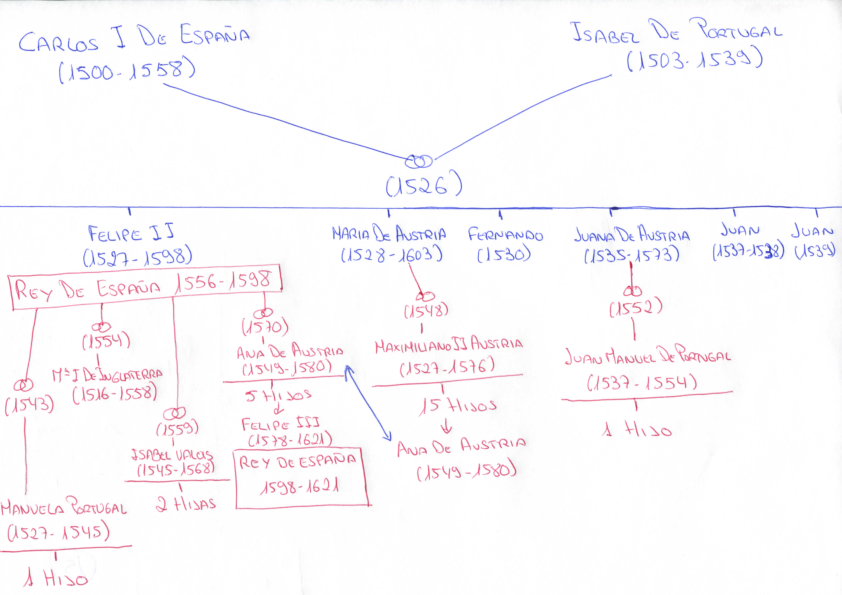 CARLOS I DE ESPAÑA
(1500-1558)
ISABEL DE PORTUGAL
(1503-1539)
(1526)
FELIPE II
(1527-1598)
REY DE ESPAÑA 1556-1598
(1543)
MANUELA PORTUGAL
(1527-1545)
1 HIJO
(1554)
Mª I DE INGLATERRA
(1516-1558)
(1559)
ISABEL VALOIS
(1545-1568)
2 HIJAS
(1570)
ANA DE AUSTRIA
(1549-1580)
5 HIJOS
FELIPE III
(1578-1621)
REY DE ESPAÑA
1598-1621
MARIA DE AUSTRIA
(1528-1603)
(1548)
MAXIMILIANO II AUSTRIA
(1527-1576)
15 HIJOS
ANA DE AUSTRIA
(1549-1580)
FERNANDO
(1530)
JUANA DE AUSTRIA
(1535-1573)
(1552)
JUAN MANUEL DE PORTUGAL
(1537-1554)
1 HIJO
JUAN
(1537-1538)
JUAN
(1539)